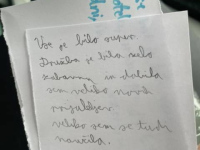 Vse je bilo super.
Družba je bila zelo
zabavna in dobila
sem veliko novih
prijateljev.
veliko sem se tudi
naučila.